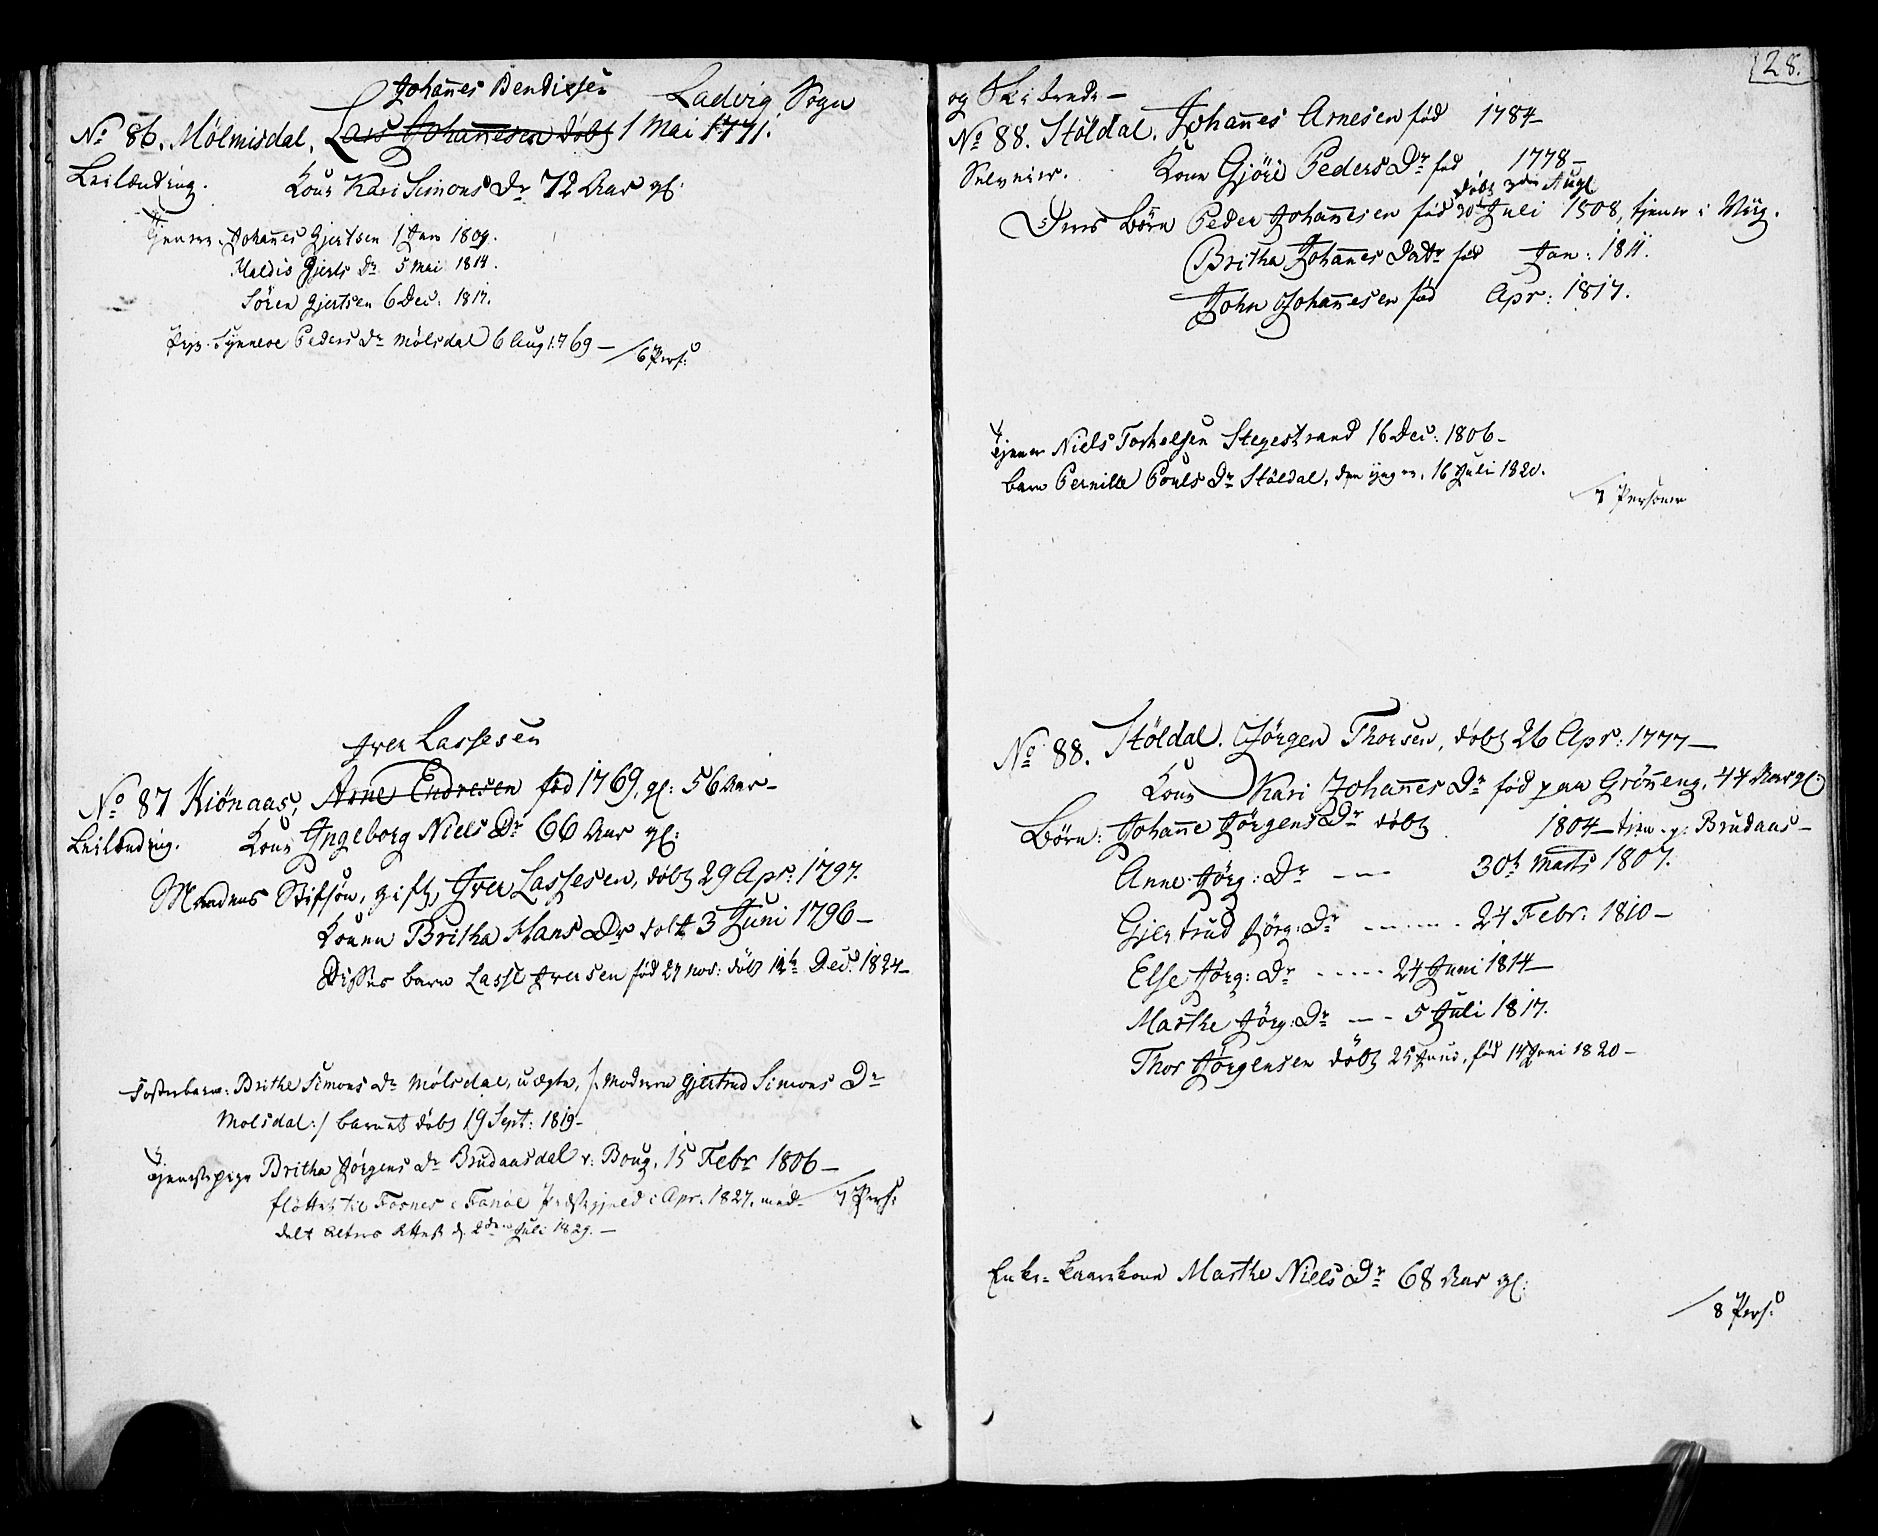 Johannes Bendixsen Ladvig Sogn
No 86. Mölmisdal, Lars Johannesen döbt 1 Mai 1771.
Leilænding. Kone Kari Simons Dr 72 Aar gl:
Tjenere Johannes Gjertsen 1 Jan 1809.
Maldis Gjerts Dr 5 Mai 1814.
Sören Gjertsen 6 Dec: 1817.
Synneve Peders Dr Mölsdal 6 Aug 1769 — / 6 Pers:
Iver Lassesen
No 87 Kiönaas, Arne Endresen fød 1769, gl: 56 Aar –
Leilænding. Kone Ingeborg Niels Dr 66 Aar gl:
Mandens Stifsön, gift, Iver Lassesen, döbt 29 Apr: 1797.
Konen Britha Hans Dr döbt 3 Juni 1796 –
Disses barn Lasse Iversen fød 27 nov: döbt 12te Dec: 1824 –
Fosterbarn: Brithe Simons Dr Mölsdal, uægte, /: Moderen Gjertrud Simons Dr
Molsdal :/ barnet döbt 19 Sept: 1819 –
Tjenestepige Britha Jörgens Dr Brudaasdal v: Boug, 15 Febr 1806 –
flöttet til Fosnes i Præstegjeld i Apr. 1827. med- / 7 Pers:
delt Attest d. 2den Juli 1829. –
128.
og Skibrede –
No 88. Stöldal. Johannes Arnesen fød 1784 –
Selveier. Kone Gjöri Peders Dr fød 1778 –
döbt 3die Aug
Deres Börn Peder Johannesen fød 30 Juli 1808, tjener i Viig.
Britha Johannes Datr fød Jan: 1811.
John Johannesen fød Apr: 1817.
Tjener Niels Torkelsen Stegestrand 16 Dec: 1806 –
barn Pernille Pouls Dr Stöldal, den yngre, 16 Juli 1820.
/ 7 Personer
No 88. Stöldal. Jörgen Thorsen, döbt 26 Apr: 1777 –
Kone Kari Johannes Dr fød paa Grönneng, 44 Aar gl:
Börn: Johanne Jörgens Dr döbt 1804 – tien. p: Brudaas –
Anne Jörg: Dr – – – 30te Marts 1807.
Gjertrud Jörg: Dr – – – – 24 Febr: 1810 –
Else Jörg: Dr – – – – 24 Juni 1814 –
Marthe Jörg: Dr – – – 5 Juli 1817.
Thor Jörgensen döbt 25 Juni, fød 14 Juni 1820 –
Enke- Kaarkone Marthe Niels Dr 68 Aar gl:
/ 8 Pers: